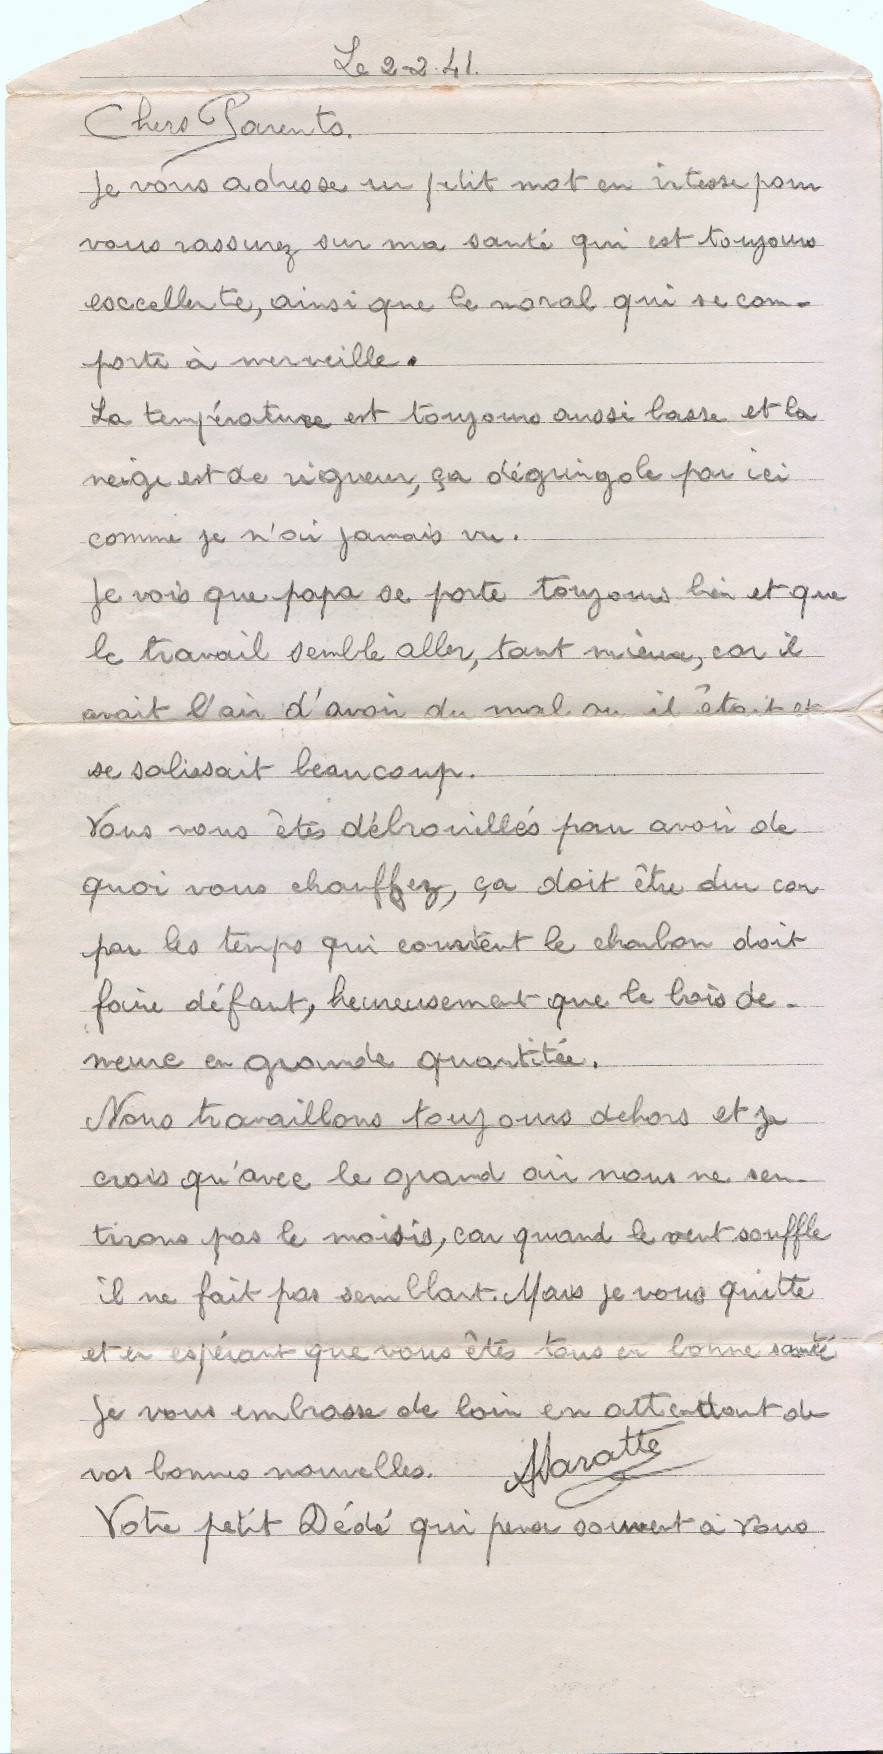 Le 2-2-41.
Chers Parents.
Je vous adresse un petit mot en vitesse pour
vous rassurez sur ma santé qui est toujours
excellente, ainsi que le moral qui se com-
porte à merveille.
La température est toujours aussi basse et la
neige est de rigueur, ça dégringole par ici
comme je n'ai jamais vu.
Je vois que papa se porte toujours bien et que
le travail semble aller, tant mieux, car il
avait l'air d'avoir du mal ou il était et
se salissait beaucoup.
Vous vous êtes débrouillés pour avoir de
quoi vous chauffez, ça doit être dur car
par les temps qui courrent le charbon doit
faire défaut, heureusement que le bois de-
meure en grande quantitée.
Nous travaillons toujours dehors et je
crois qu'avec le grand air nous ne sen-
tirons pas le moisis, car quand le vent souffle
il ne fait pas semblant. Mais je vous quitte
et en espérant que vous êtes tous en bonne santé
Je vous embrasse de loin en attendant de
vos bonnes nouvelles.
Votre petit Dédé qui pense souvent à vous